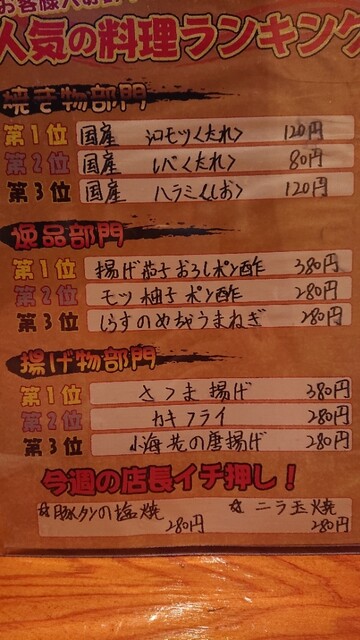 お客様人気
人気の料理ランキング
焼き物部門
第1位 国産 シロモツ<たれ> 120円
第2位 国産 レバ<たれ> 80円
第3位 国産 ハラミ<しお> 120円
逸品部門
第1位 揚げ茄子おろしポン酢 380円
第2位 モツ柚子ポン酢 280円
第3位 しらすのめちゃうまねぎ 280円
揚げ物部門
第1位 さつま揚げ 380円
第2位 カキフライ 280円
第3位 小海老の唐揚げ 280円
今週の店長イチ押し!
☆豚タンの塩焼 280円 ☆ニラ玉焼 280円